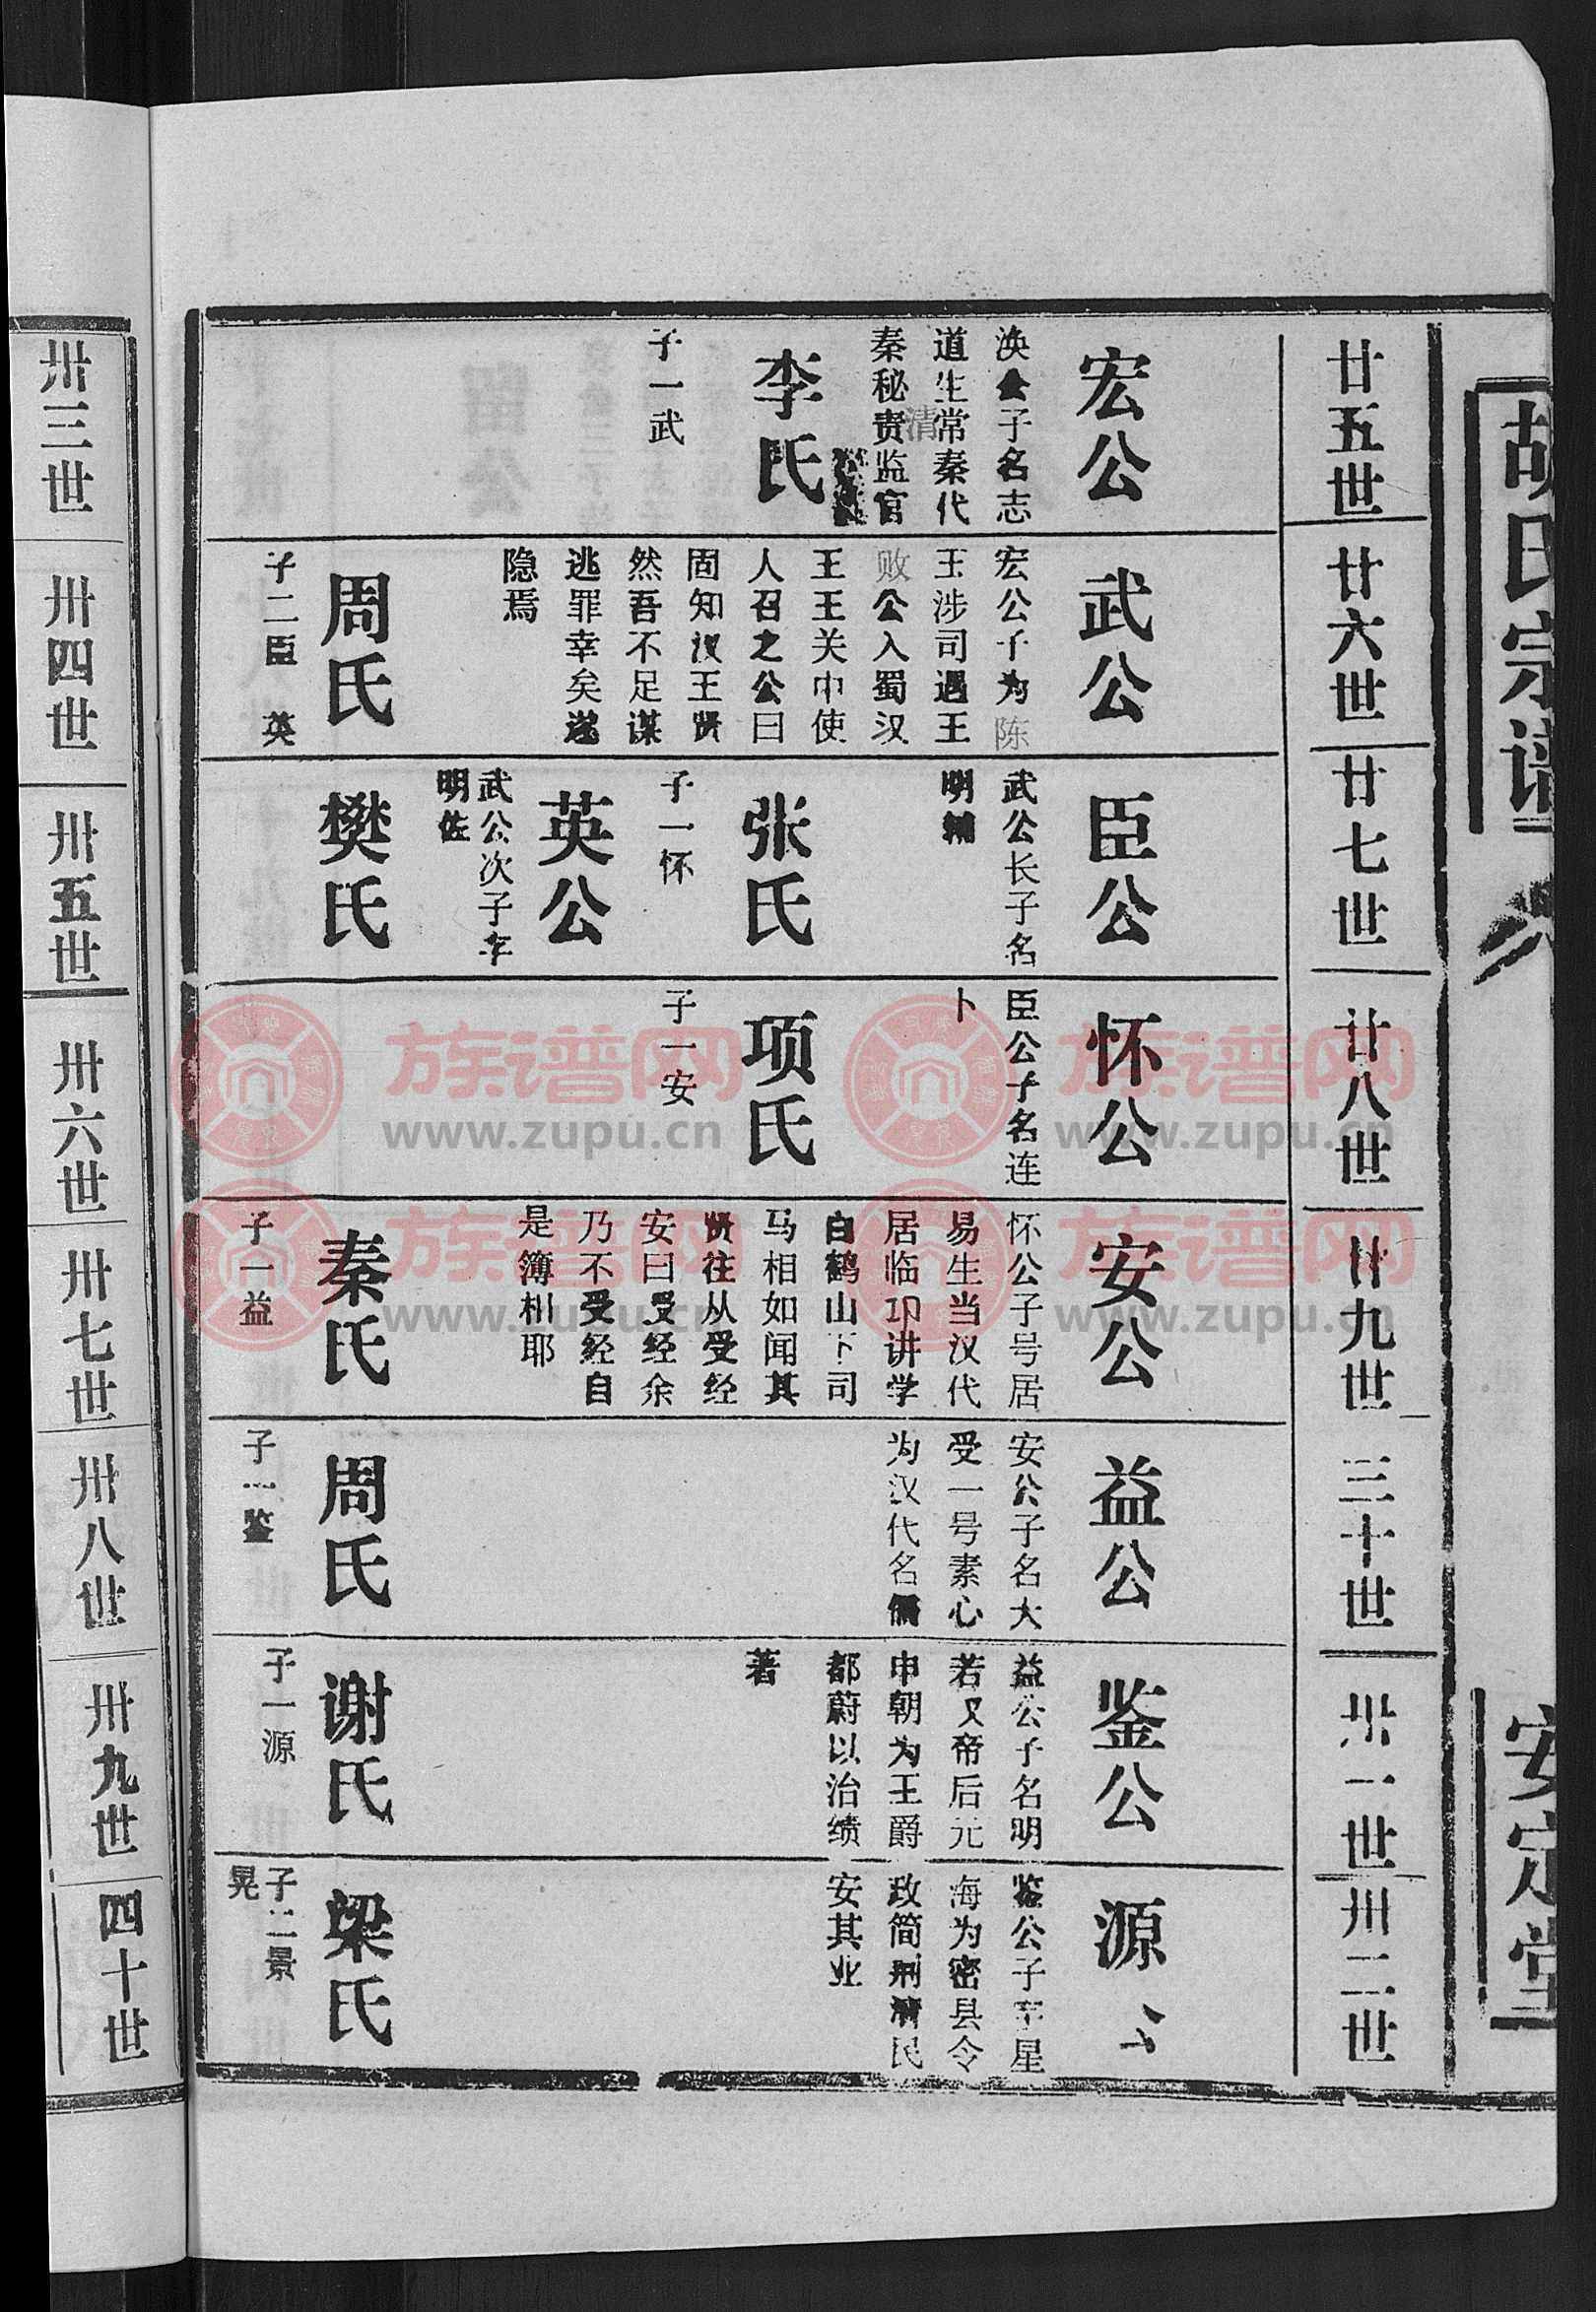 胡氏宗谱
安定堂
廿五世
宏公
涣公子名志
道生常秦代
清
秦秘责监官
李氏
子一武
廿六世
武公
宏公子为陈
王涉司遇王
败公入蜀汉
王王关中使
人召之公曰
固知汉王贤
然吾不足谋
逃罪幸矣遂
隐焉
周氏
子二臣 英
廿七世
臣公
武公长子名
明辅
张氏
子一怀
英公
武公次子字
明佐
樊氏
廿八世
怀公
臣公子名连
卜
项氏
子一安
廿九世
安公
怀公子号居
易生当汉代
居临邛讲学
白鹤山下司
马相如闻其
贤往从受经
安曰受经余
乃不受经自
是簿相耶
秦氏
子一益
三十世
益公
安公子名大
受一号素心
为汉代名儒
周氏
子一鉴
卅一世
鉴公
益公子名明
若又帝后元
申朝为王爵
都蔚以治绩
著
谢氏
子一源
卅二世
源公
鉴公子字星
海为密县令
政简刑清民
安其业
梁氏
子二景
晃
卅三世
卅四世
卅五世
卅六世
卅七世
卅八世
卅九世
四十世
族谱网
www.zupu.cn
族谱网
www.zupu.cn
族谱网
www.zupu.cn
族谱网
www.zupu.cn